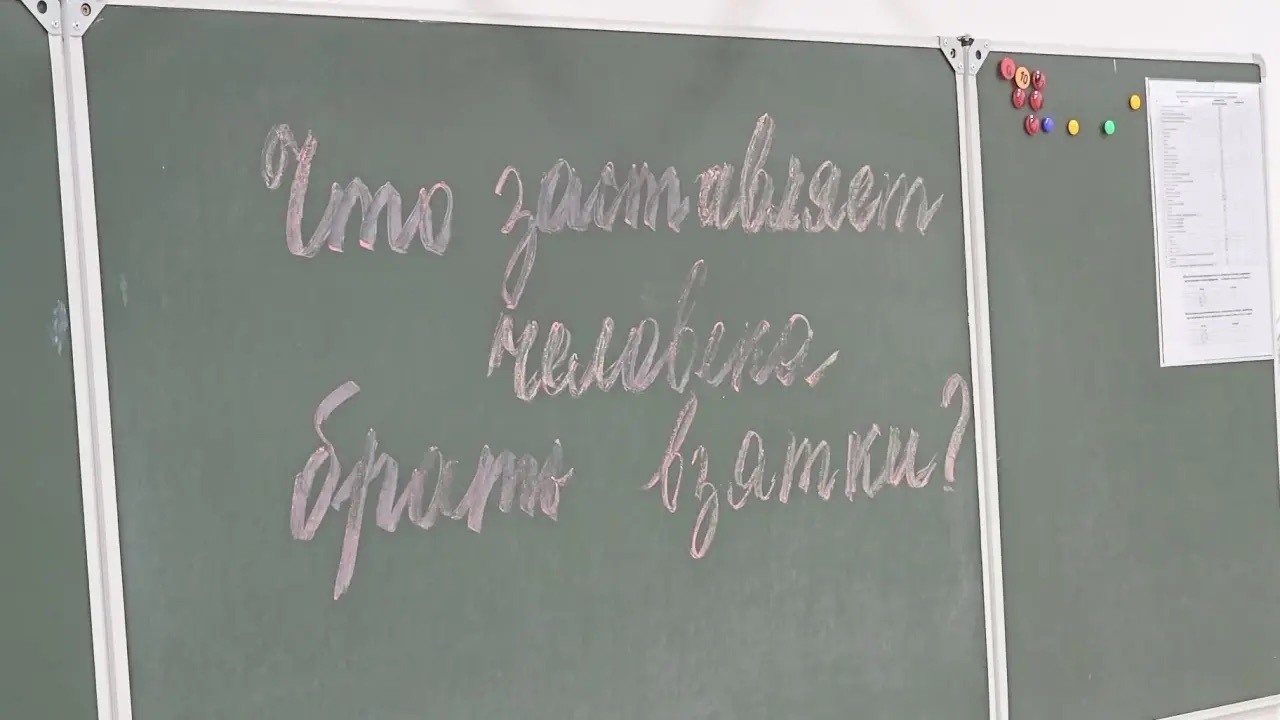 Что заставляет
человека
брать взятки?
10